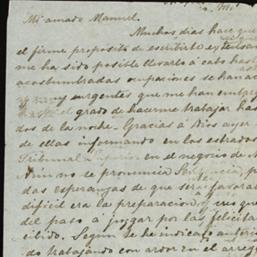 Mi amado Manuel.
Muchos dias hace que
el firme propósito de escribirte extensam
me ha sido posible llevarlo á cabo has
acostumbradas ocupaciones se han a
muy urgentes que me han
el grado de hacerme trabajar has
dos de la noche. Gracias á Dios ayer
de ellas informando en los estrados
Tribunal en el negocio de
Aun no se pronuncia Sentencia, p
das esperanzas de que sera favora
difícil era la preparacion y creo que
del paso á juzgar por las felicita
cibido. Segun te he indicado
do trabajando con ardor en el arreg